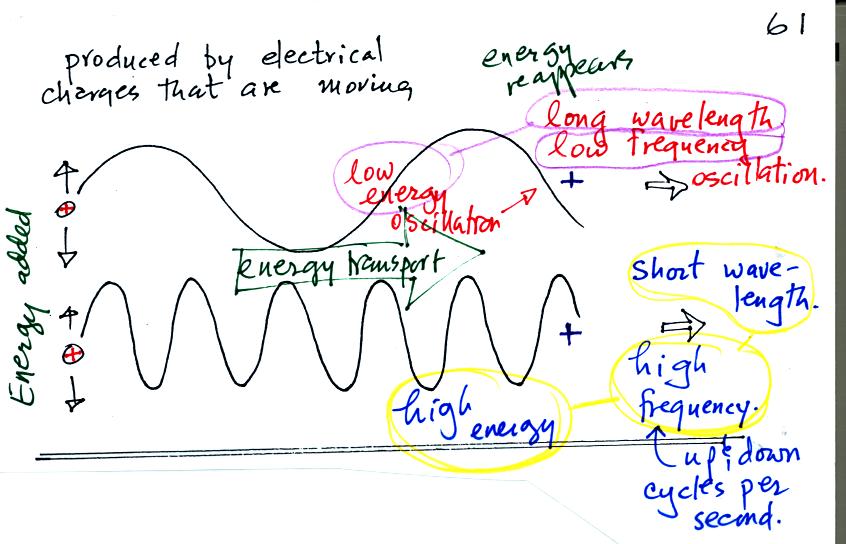 61
produced by electrical
charges that are moving
energy
reappears
long wavelength
low frequency
low
energy
oscillation
+
oscillation.
Energy added
+
energy transport
short wave-
length.
+
+
high
frequency.
high
energy
up & down
cycles per
second.